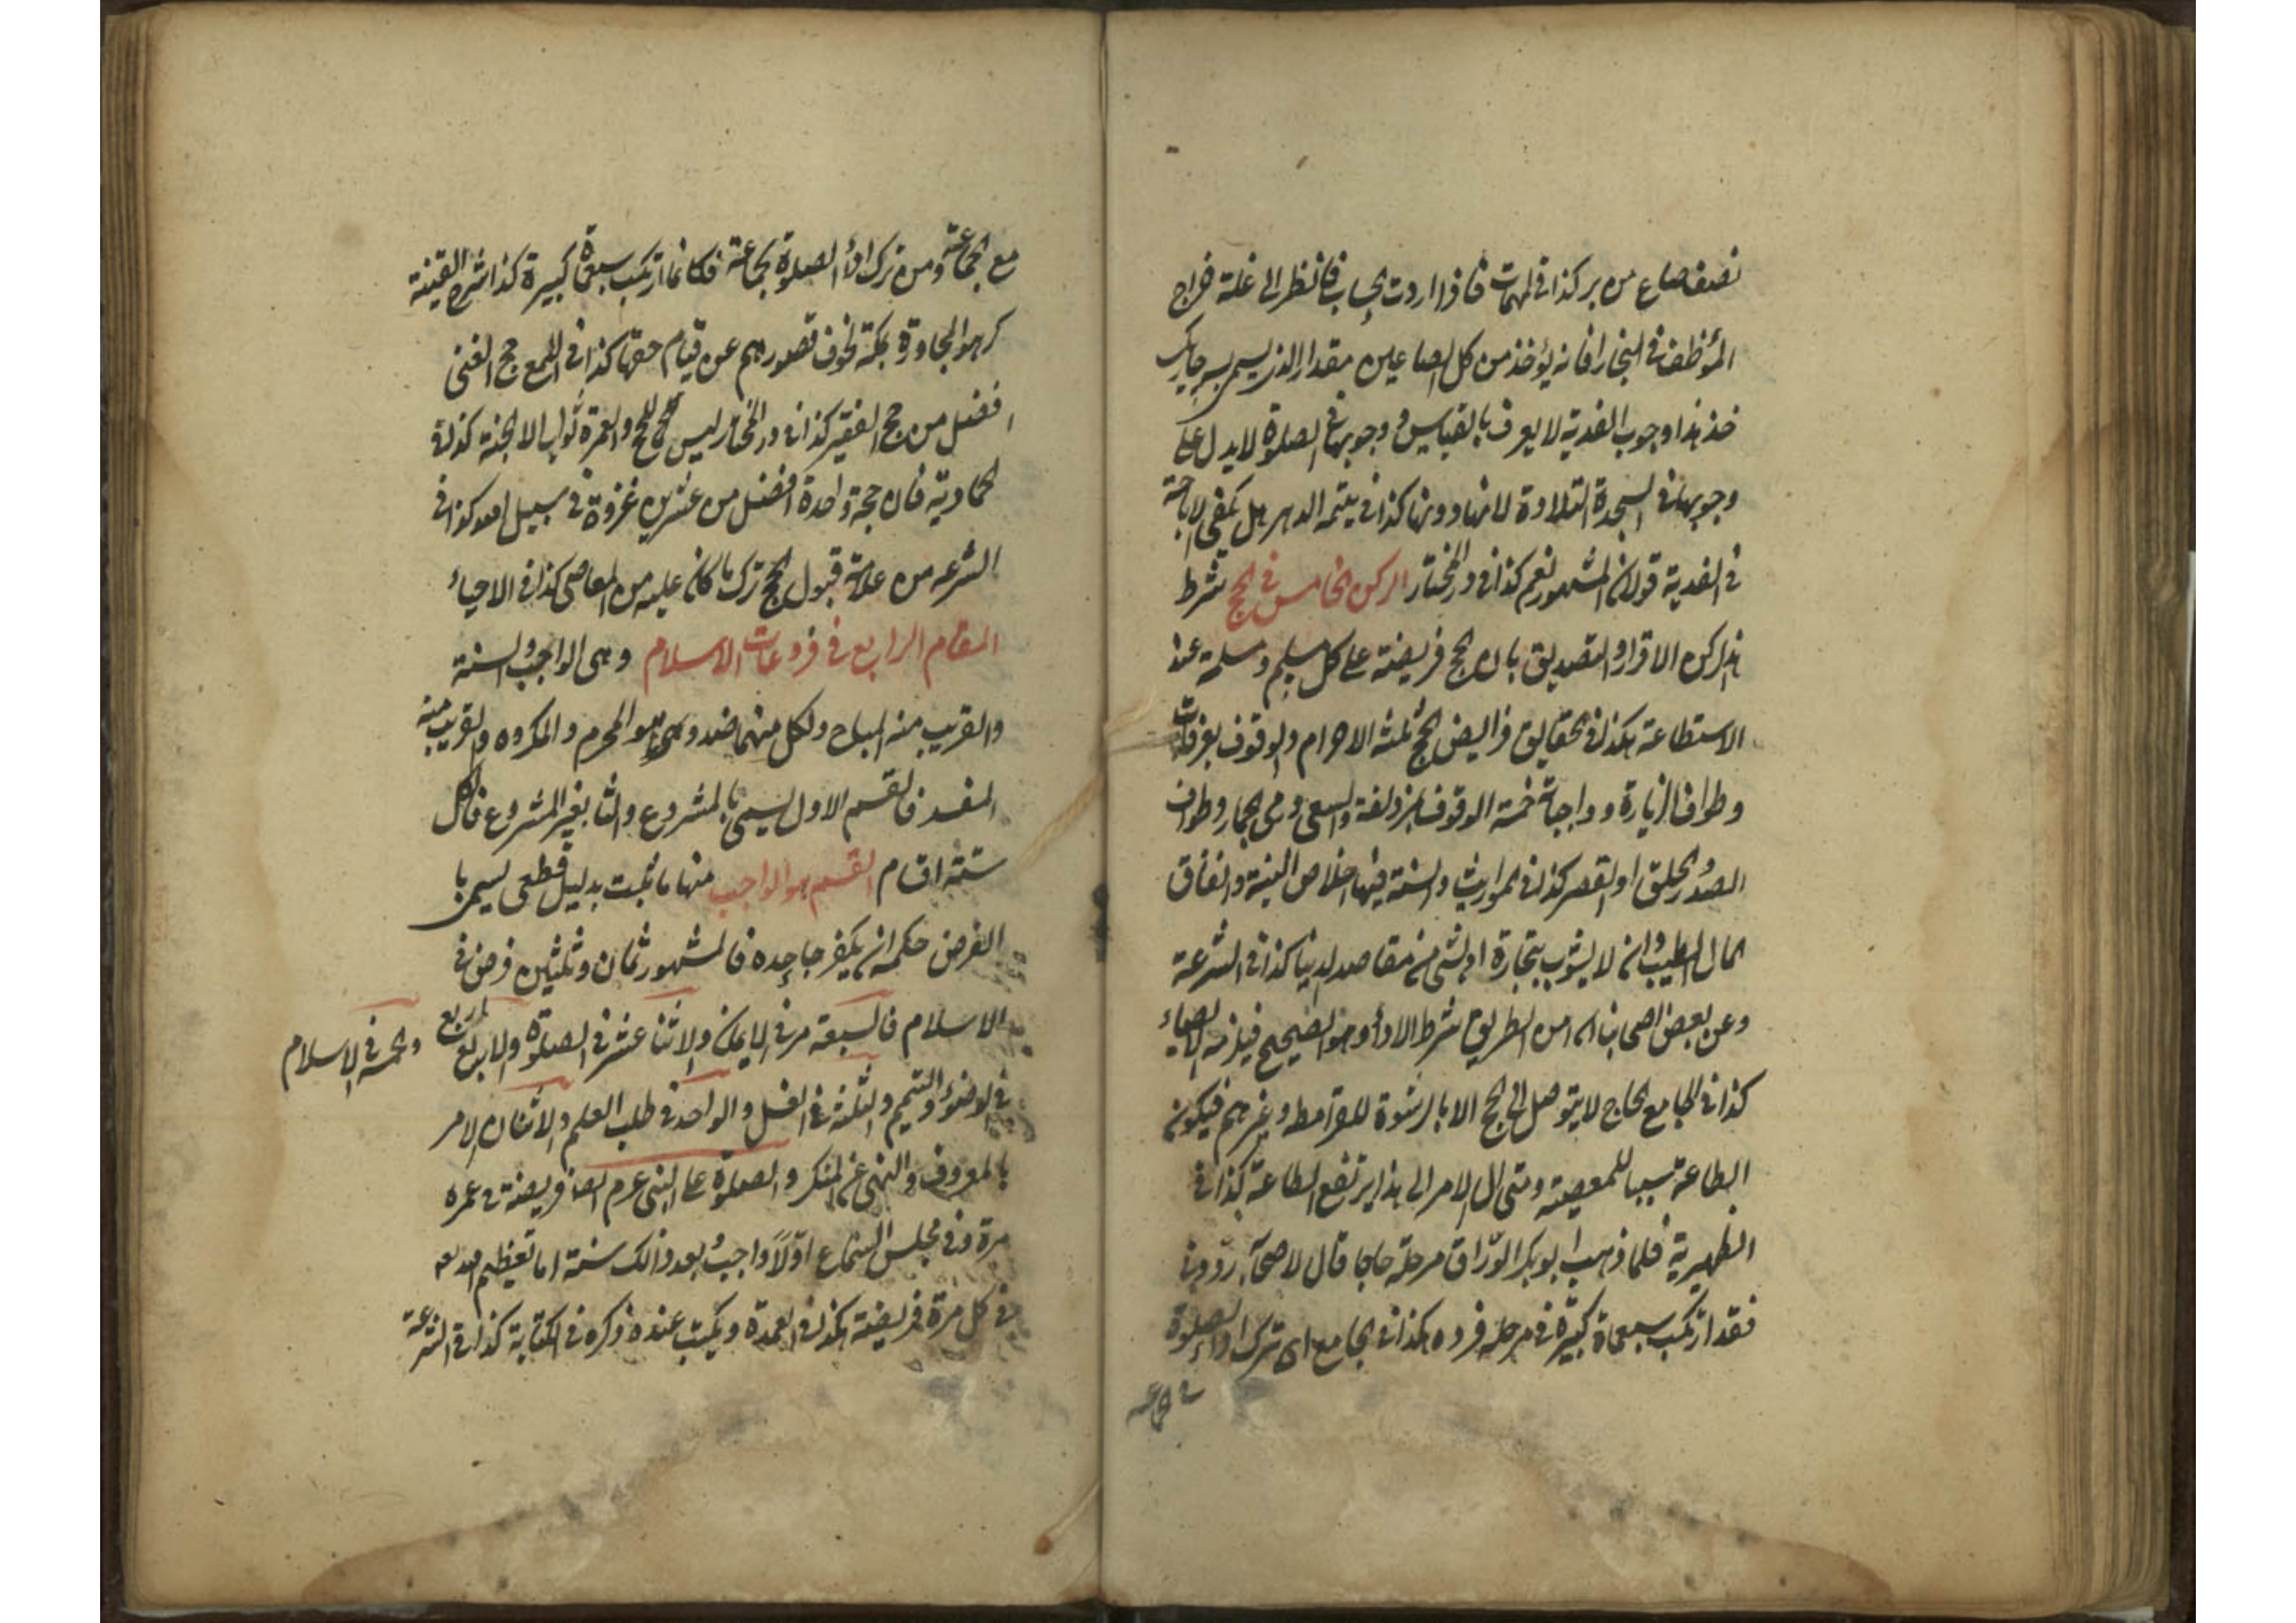 نصف صاع من بر كذا في المهمات فاذا اردت بحساب فانظر الى غلة خراج
المؤظف في البخارا فانه يؤخذ من كل الصاعين مقدار الذي يسمى
خذ هذا وجوب الفدية لا يعرف بالقياس ووجوبها في الصلوة لا يدل على
وجوبها في السجدة التلاوة لانها دونها كذا في يتيمة الدهر هل يكفي الاباحة
في الفدية قولان المشهور نعم كذا في در المختار الركن الخامس في الحج شرط
هذا الركن الاقرار والتصديق بان الحج فريضة على كل مسلم ومسلمة عند
الاستطاعة هكذا في الحقايق فرايض الحج ثلثة الاحرام والوقوف بعرفات
وطواف الزيارة وواجباته خمسة الوقوف بمزدلفة والسعي ورمي الجمار وطواف
الصدر والحلق او القصر كذا في المواريث والسنة فيها اخلاص النية وانفاق
المال الطيب وان لا يشوب بتجارة او لشئ من مقاصد الدنيا كذا في الشرعة
وعن بعض اصحابنا ان امن الطريق شرط الادأ وهو الصحيح فيلزمه الايصاء
كذا في الجامع الحاج لا يتوصل الى الحج الا بالرشوة للقرامطه وغيرهم فيكون
الطاعة سببا للمعصية ومتى ال الامر الى هذا يرتفع الطاعة كذا في
الظهيرية فلما ذهب ابو بكر الورّاق مرحلة حاجا قال لاصحابه ردّوني
فقد ارتكبت سبعمأة كبيرة في مرحلة فردوه هكذا في الجامع اى ترك اداء الصلوة
مع الجماعة
مع الجماعة ومن ترك ادأ الصلوة بجماعة فكانما ارتكب سبعمأة كبيرة كذا شرح القنية
كرهوا المجاورة بمكة لخوف قصورهم عن قيام حقها كذا في اللمع حج الغني
افضل من حج الفقير كذا في در المختار ليس للحج والعمرة ثواب الا الجنة كذا في
الحمادية فان حجة واحدة افضل من عشرين غزوة في سبيل الله كذا في
الشرعه من علامة قبول الحج ترك ما كان عليه من المعاصي كذا في الاحياء
المقام الرابع في فروعات الاسلام وهي الواجب والسنة
والقريب منه المباح ولكل منهما ضد وهو المحرم والمكروه والقريب منه
المفسد فالقسم الاول يسمى بالمشروع والثاني بغير المشروع فالكل
ستة اقسام القسم هو الواجب منها ما ثبت بدليل قطعي يسمى با
الفرض حكمه ان يكفر جاحده فالمشهور ثمان وثلثين فرض في
الاسلام فالسبعة مر في الايمان والاثنا عشر في الصلوة والاربع اربع
والخمسة في الاسلام
في الوضوء والتيمم والثلثة في الغسل والواحد في طلب العلم والاثنان الامر
بالمعروف والنهي عن المنكر والصلوة على النبي عرم ايضا فريضة في عمره
مرة وفي مجلس السماع اوّلاً واجب وبعد ذالك سنة اما تعظيم الله تعه
في كل مرة فريضة هكذا في العمدة ويكتب عنده ذكره في الكتابة كذا في الشرعة